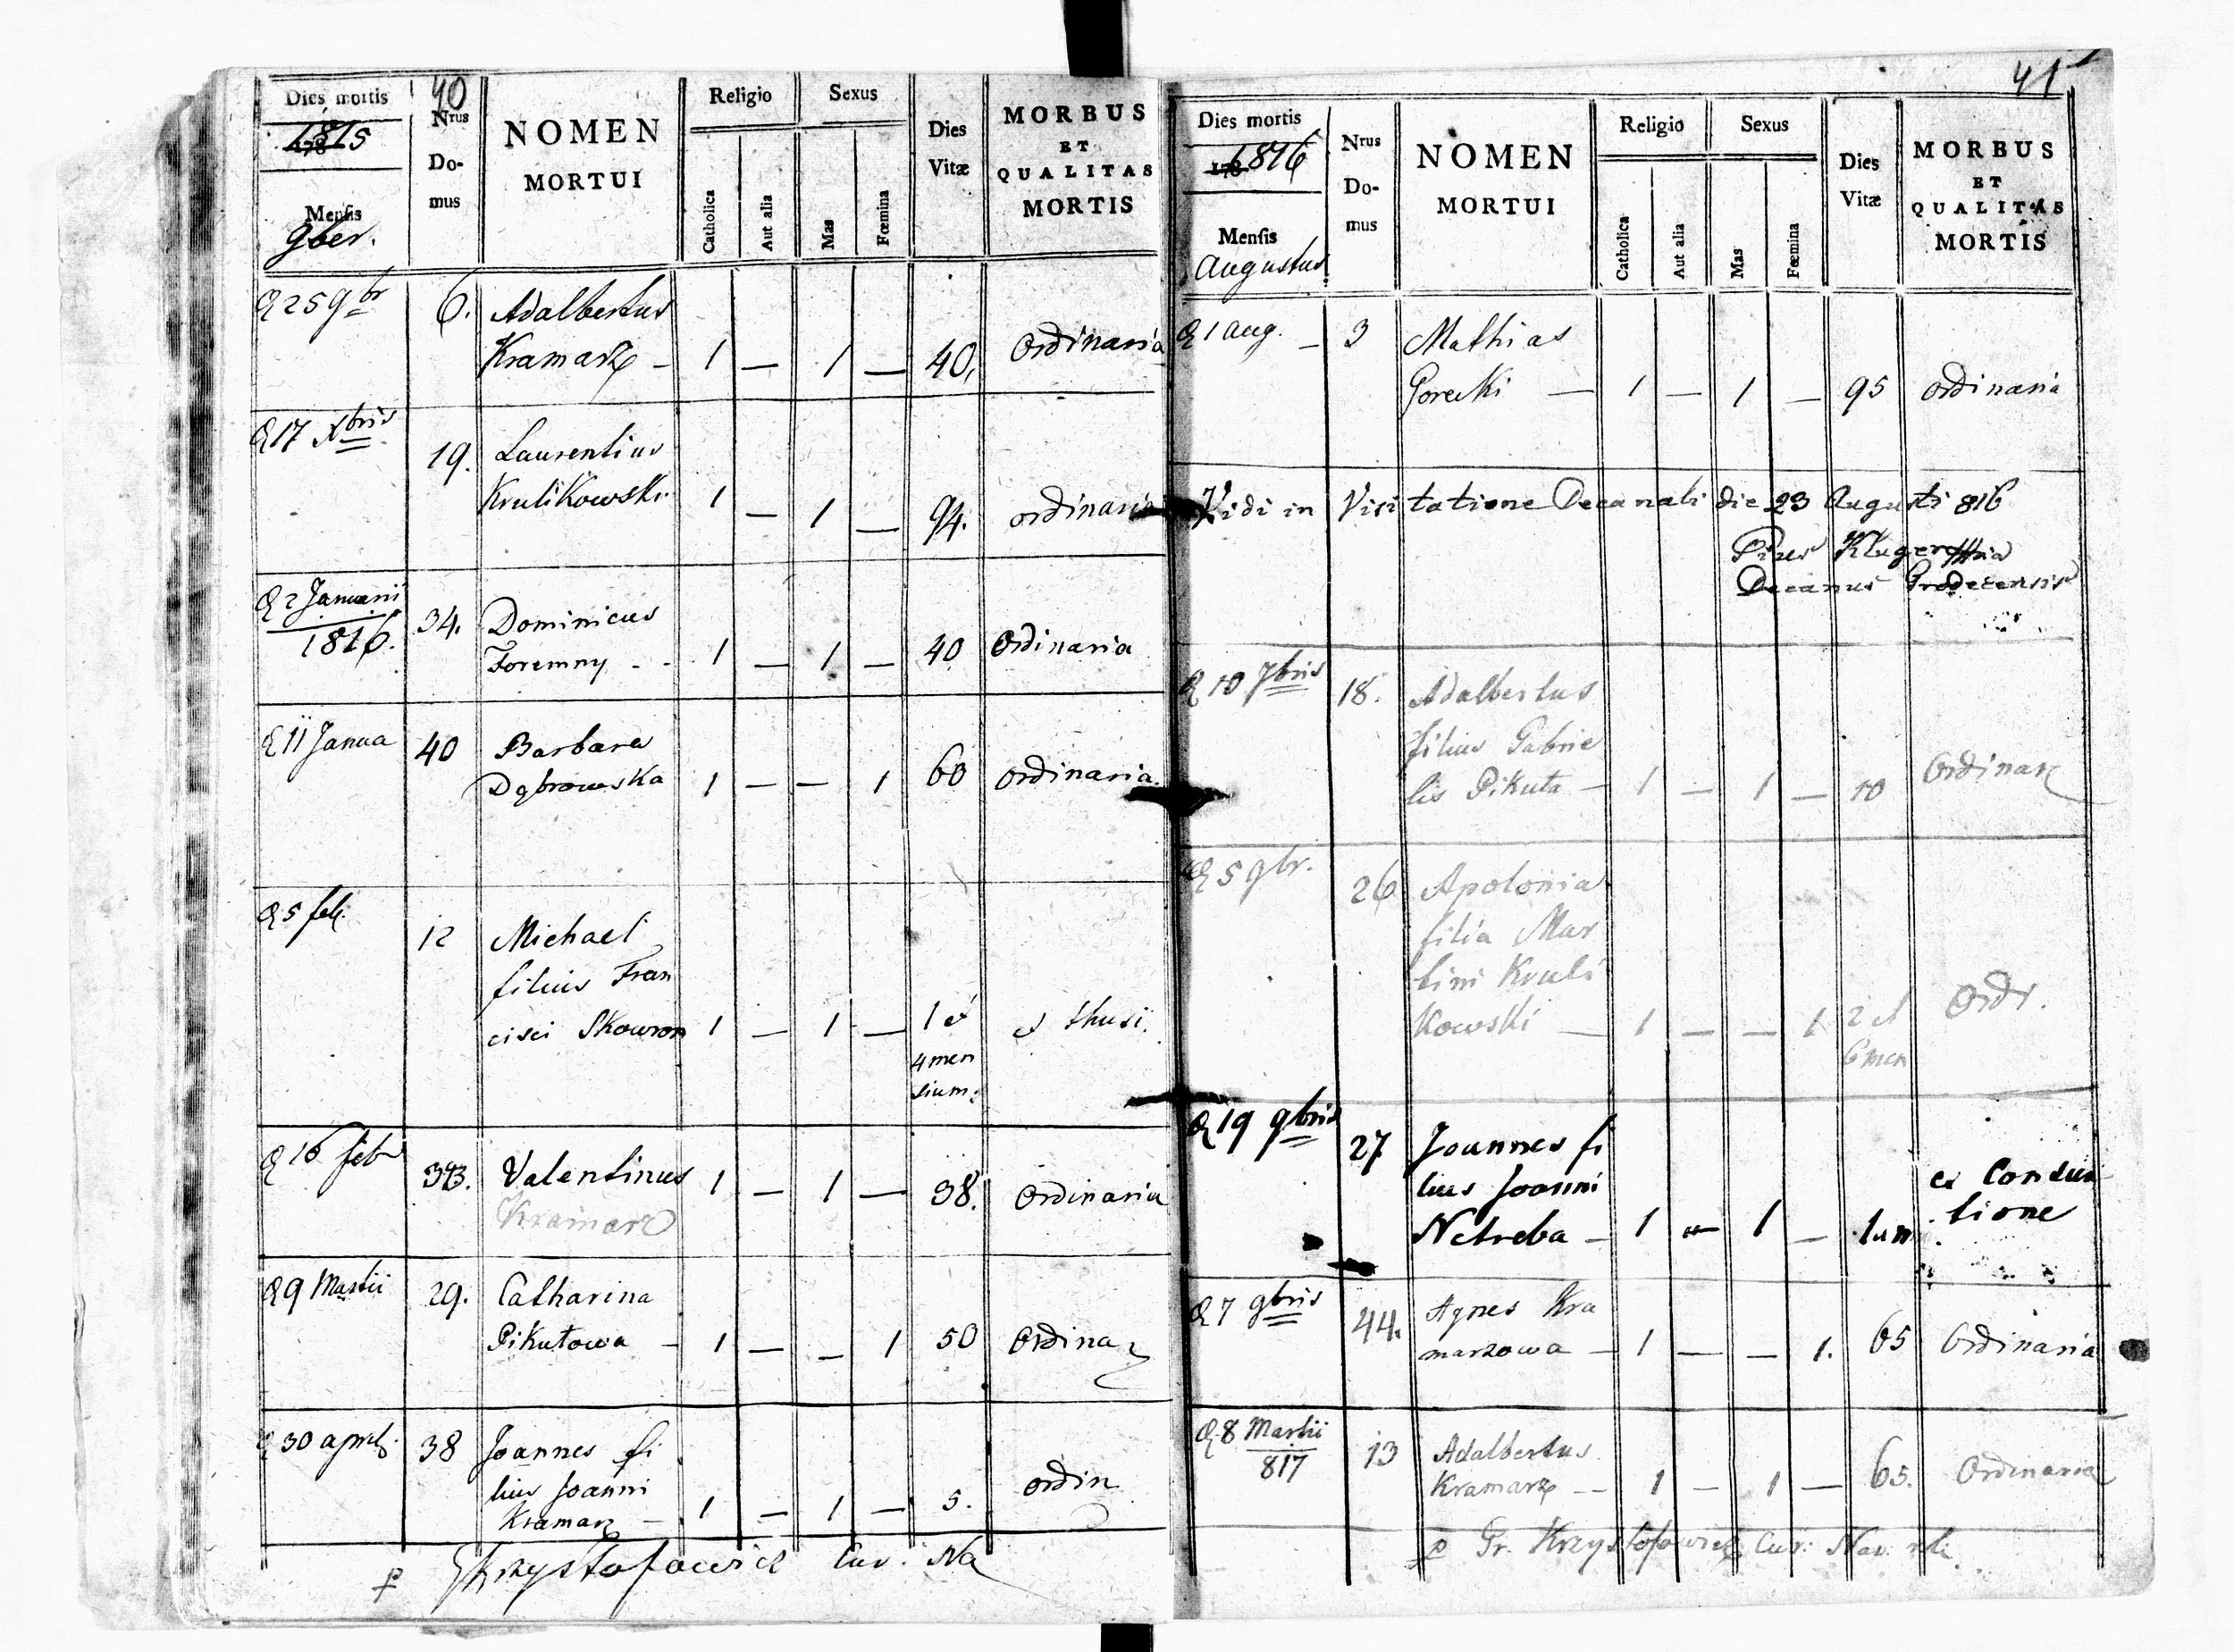 40
Dies mortis
1815
Mensis
9ber.
Nrus
Do-
mus
NOMEN
MORTUI
Religio
Catholica
Aut alia
Sexus
Mas
Fœmina
Dies
Vitæ
MORBUS
ET
QUALITAS
MORTIS
25 9br 6. Adalbertus
Kramarz – 1 — 1 — 40. Ordinaria
17 Xbris 19. Laurentius
Krulikowski 1 — 1 — 94. ordinaria
2 Januarii
1816. 34. Dominicus
Foremny - - 1 — 1 — 40 Ordinaria
11 Janua 40 Barbara
Dąbrowska 1 — — 1 60 ordinaria.
5 feb. 12 Michael
filius Fran
cisci Skowron 1 — 1 — 1 et ex thusi.
4 men
sium.
16 feb Valentinus 1 — 1 — 38. Ordinaria
Kramarz
9 Martii 29. Catharina
Pikutowa – 1 — — 1 50 Ordinar
30 april. 38 Joannes fi
lius Joanni
Kramarz – 1 — 1 — 5. ordin
p Krzysztofowicz Cur. Na
41
Dies mortis
178
1816
Mensis
Augustus
Nrus
Do-
mus
NOMEN
MORTUI
Religio
Catholica
Aut alia
Sexus
Mas
Fœmina
Dies
Vitæ
MORBUS
ET
QUALITAS
MORTIS
1 aug. – 3 Mathias
Gorecki — 1 — 1 — 95 ordinaria
Vidi in Visitatione Decanali die 23 Augusti 816
Decanus Grodecensis
10 7bris 18. Adalbertus
filius Gabrie
lis Pikuta – 1 — 1 — 10 Ordinar
5 9br. 26 Apolonia
filia Mar
tini Kruli
kowski — 1 — — 1 2 et Ordr.
6 men
19 9bris 27 Joannes fi
lius Joanni
Netreba – 1 — 1 — 1 an ex Consun
tione
7 9bris 44. Agnes Kra
marzowa – 1 — — 1. 65 Ordinaria
8 Martii
817 13 Adalbertus
Kramarz -- 1 – 1 — 65. Ordinaria
p Gr. Krzysztofowicz Cur: Nav.